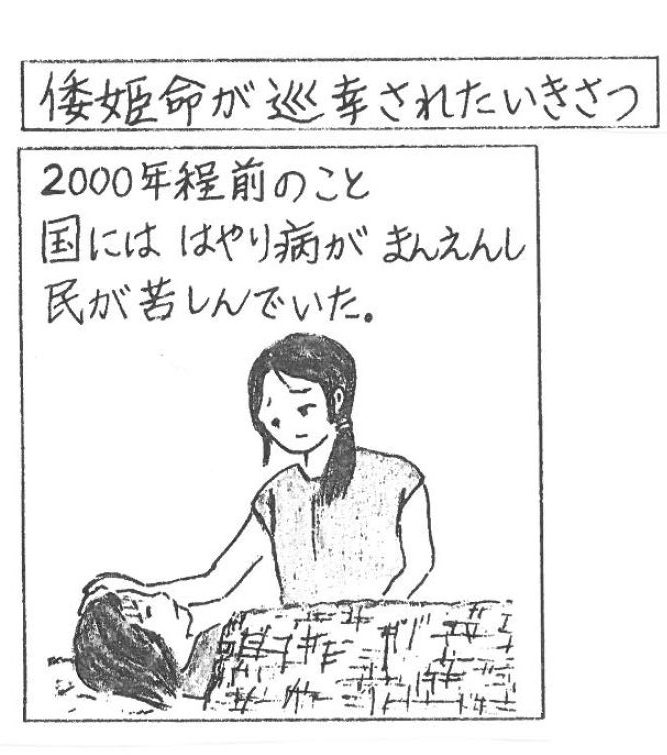 倭姫命が巡幸されたいきさつ
2000年程前のこと
国には はやり病が まんえんし
民が苦しんでいた。